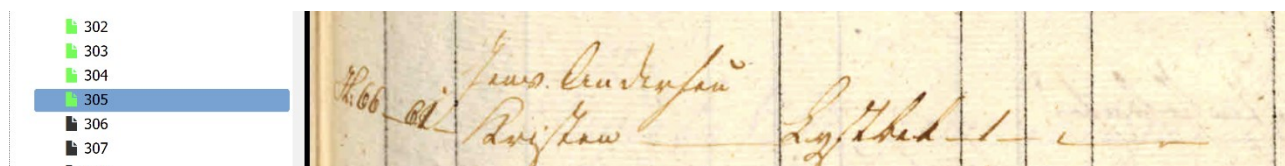 302
303
304
305
306
307
Jens Andersen
66 61 Kristen Lystbek 1